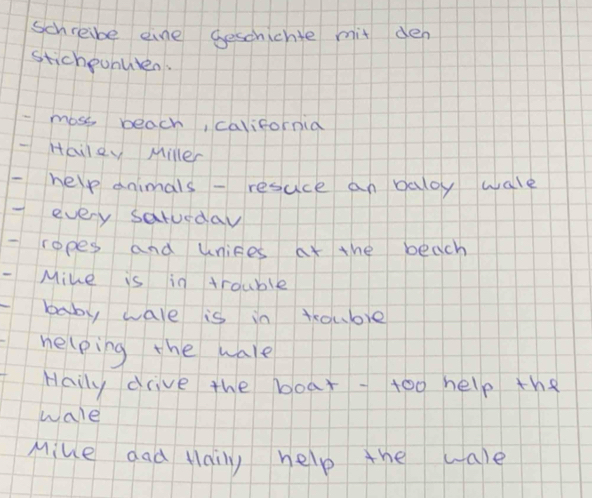 Schreibe eine Geschichte mit den
Stichpunkten.
- moss beach, california
- Hailey Miller
- help animals - resuce an baby wale
- every saturday
- ropes and knifes at the beach
- Mike is in trouble
- baby wale is in trouble
- helping the wale
- Haily drive the boat - too help the
wale
Mike and Haily help the wale